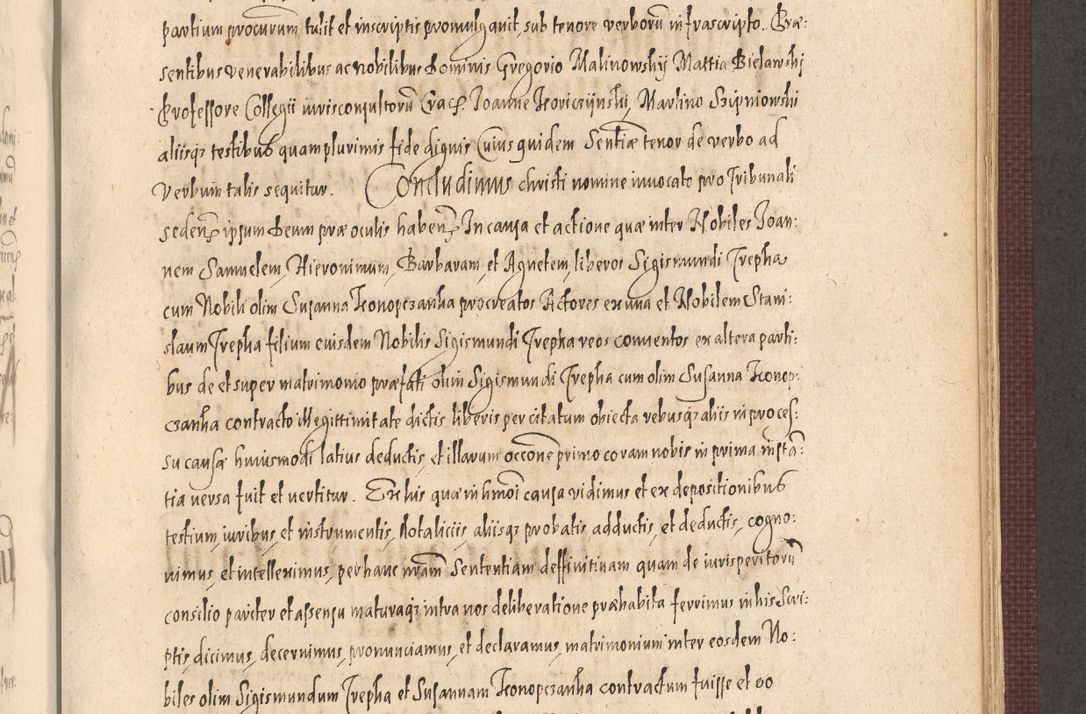 partium procurum tulit et inscriptis promulgauit, sub tenore verborũ infrascripto. Præ:
sentibus venerabilibus ac nobilibus Dominis Gregorio Malinowskÿ Mattia Bielawskj
Professore Collegii iurisconsultorũ Crac: Joanne Koviczijnskj, Martino Szipniowski
aliisq; testibus quamplurimis fide dignis Cuius quidem Sentiæ tenor de verbo ad
Verbum talis sequitur. Concludimus christi nomine inuocato pro Tribunali
seden: ipsum Deum præ oculis haben: In causa et actione quæ inter Nobiles Joan:
nem Samuelem, Hieronimum, Barbaram, et Agnetem, liberos Sigismundi Trepka
cum Nobili olim Susanna Konopczanka procreatos Actores ex una et Nobilem Stani:
slaum Trepka filium eiusdem Nobilis Sigismundi Trepka reos conuentos ex altera parti:
bus de et super matrimonio præfati olim Sigismundi Trepka cum olim Susanna Konop:
czanka contracto illegittimitate dictis liberis per citatum obiecta rebusq; aliis in proces:
su causæ huiusmodi latius deductis, et illarum occõne primo coram nobis in prima instã:
tia uersa fuit et uertitur. Ex his quæ in hmõi causa vidimus et ex depositionibus
testium, iuribus, et instrumentis, dotaliciis, aliisq; probatis adductis, et deductis, cogno:
uimus, et intelleximus, per hanc nrãm Sententiam deffinitiuam quam de iurisperitorũ
consilio pariter et assensu maturaq; intra nos deliberatione præhabita ferrimus in his Scri:
ptis, dicimus, decernimus, pronunciamus, et declaramus, matrimonium inter eosdem No:
biles olim Sigismundum Trepka et Susannam Konopczanka contractum fuisse et eo